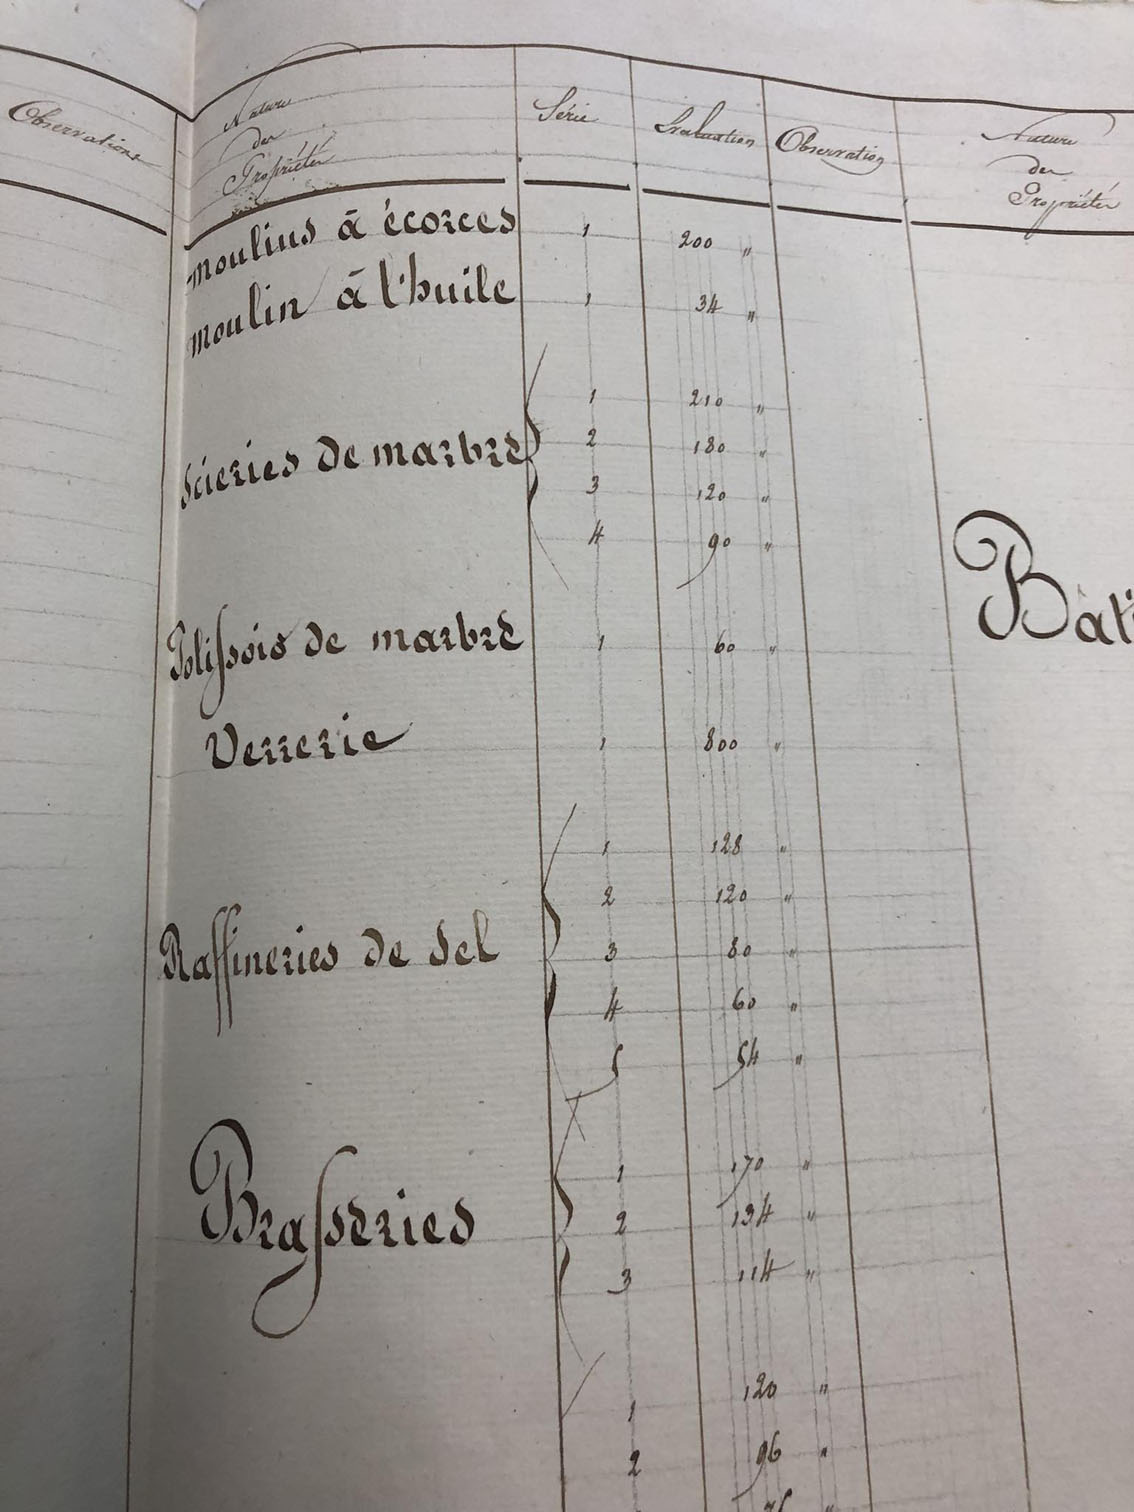 Observations
Nature des Propriétés
Série
Evaluation
Observation
Nature des Propriétés
moulins à écorces 1 200 "
moulin à l'huile 1 34 "
Scieries de marbre
1 210 "
2 180 "
3 120 "
4 90 "
Polissois de marbre 1 60 "
Verrerie 1 800 "
Raffineries de sel
1 128 "
2 120 "
3 80 "
4 60 "
5 54 "
Brasseries
1 170 "
2 134 "
3 114 "
1 120 "
2 96 "
Bâti